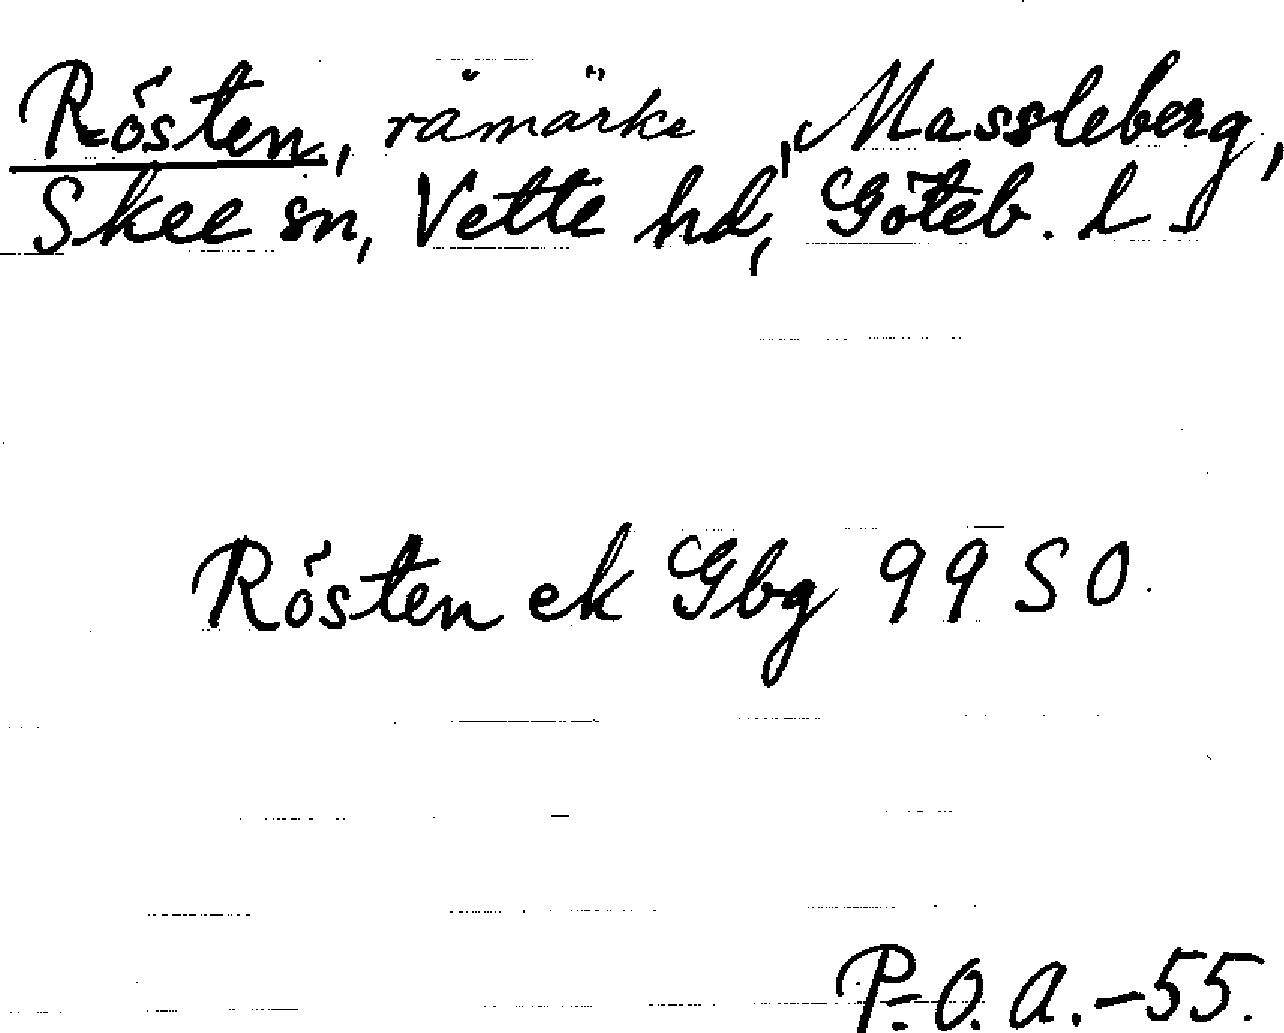 Rösten, råmärke, Massleberg,
Skee sn, Vette hd, Göteb. L
Rösten ek Gbg 99 SO.
P.O.A.-55.